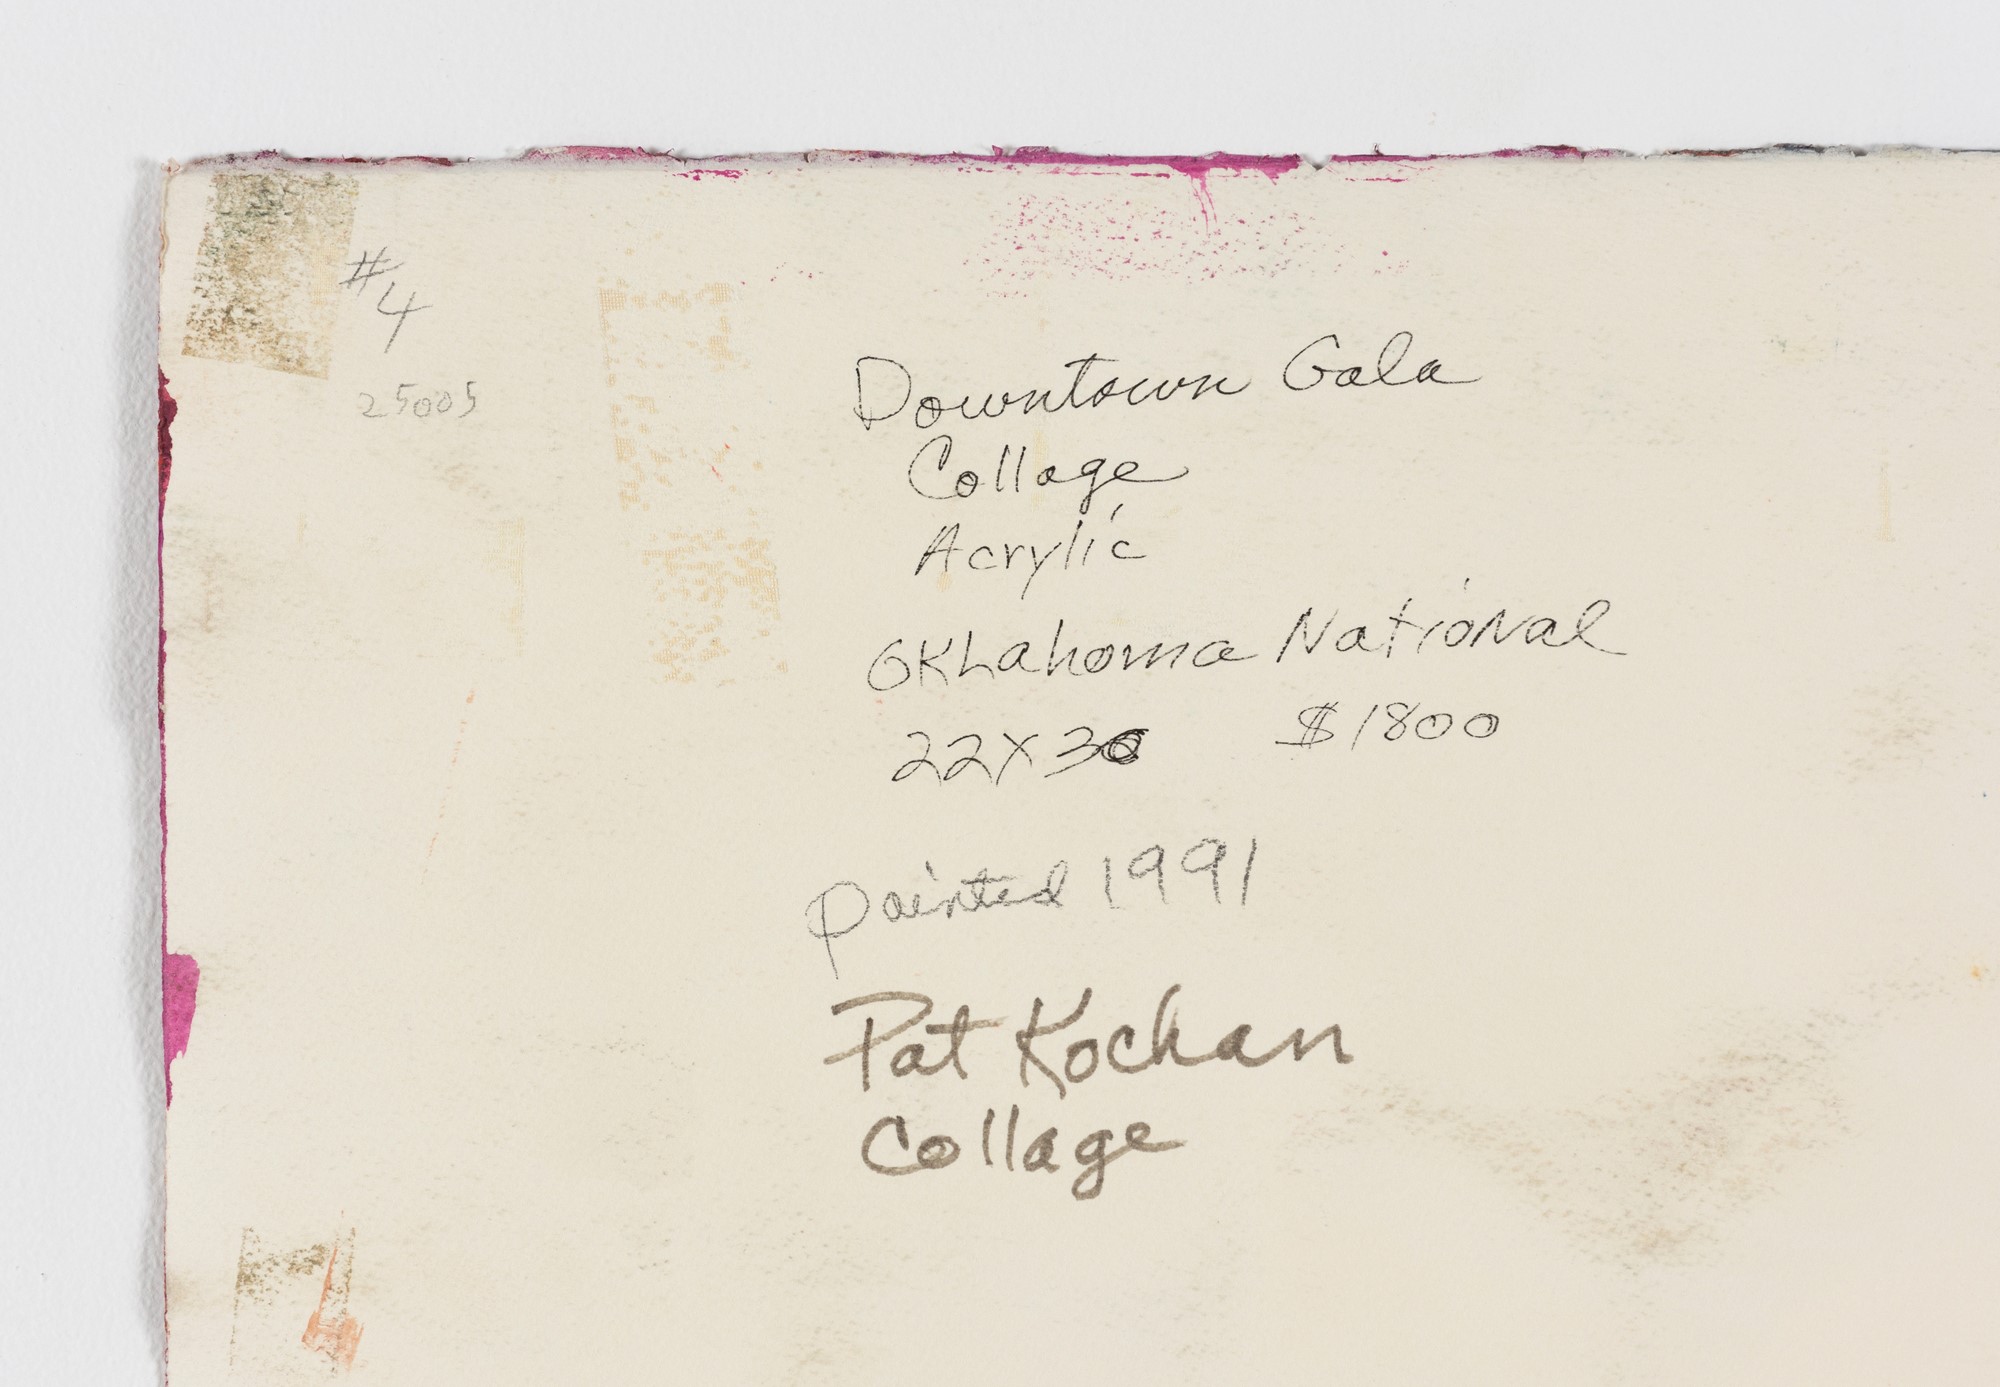 #4
25005
Downtown Gala
Collage
Acrylic
Oklahoma National
22X30 $1800
painted 1991
Pat Kochan
Collage